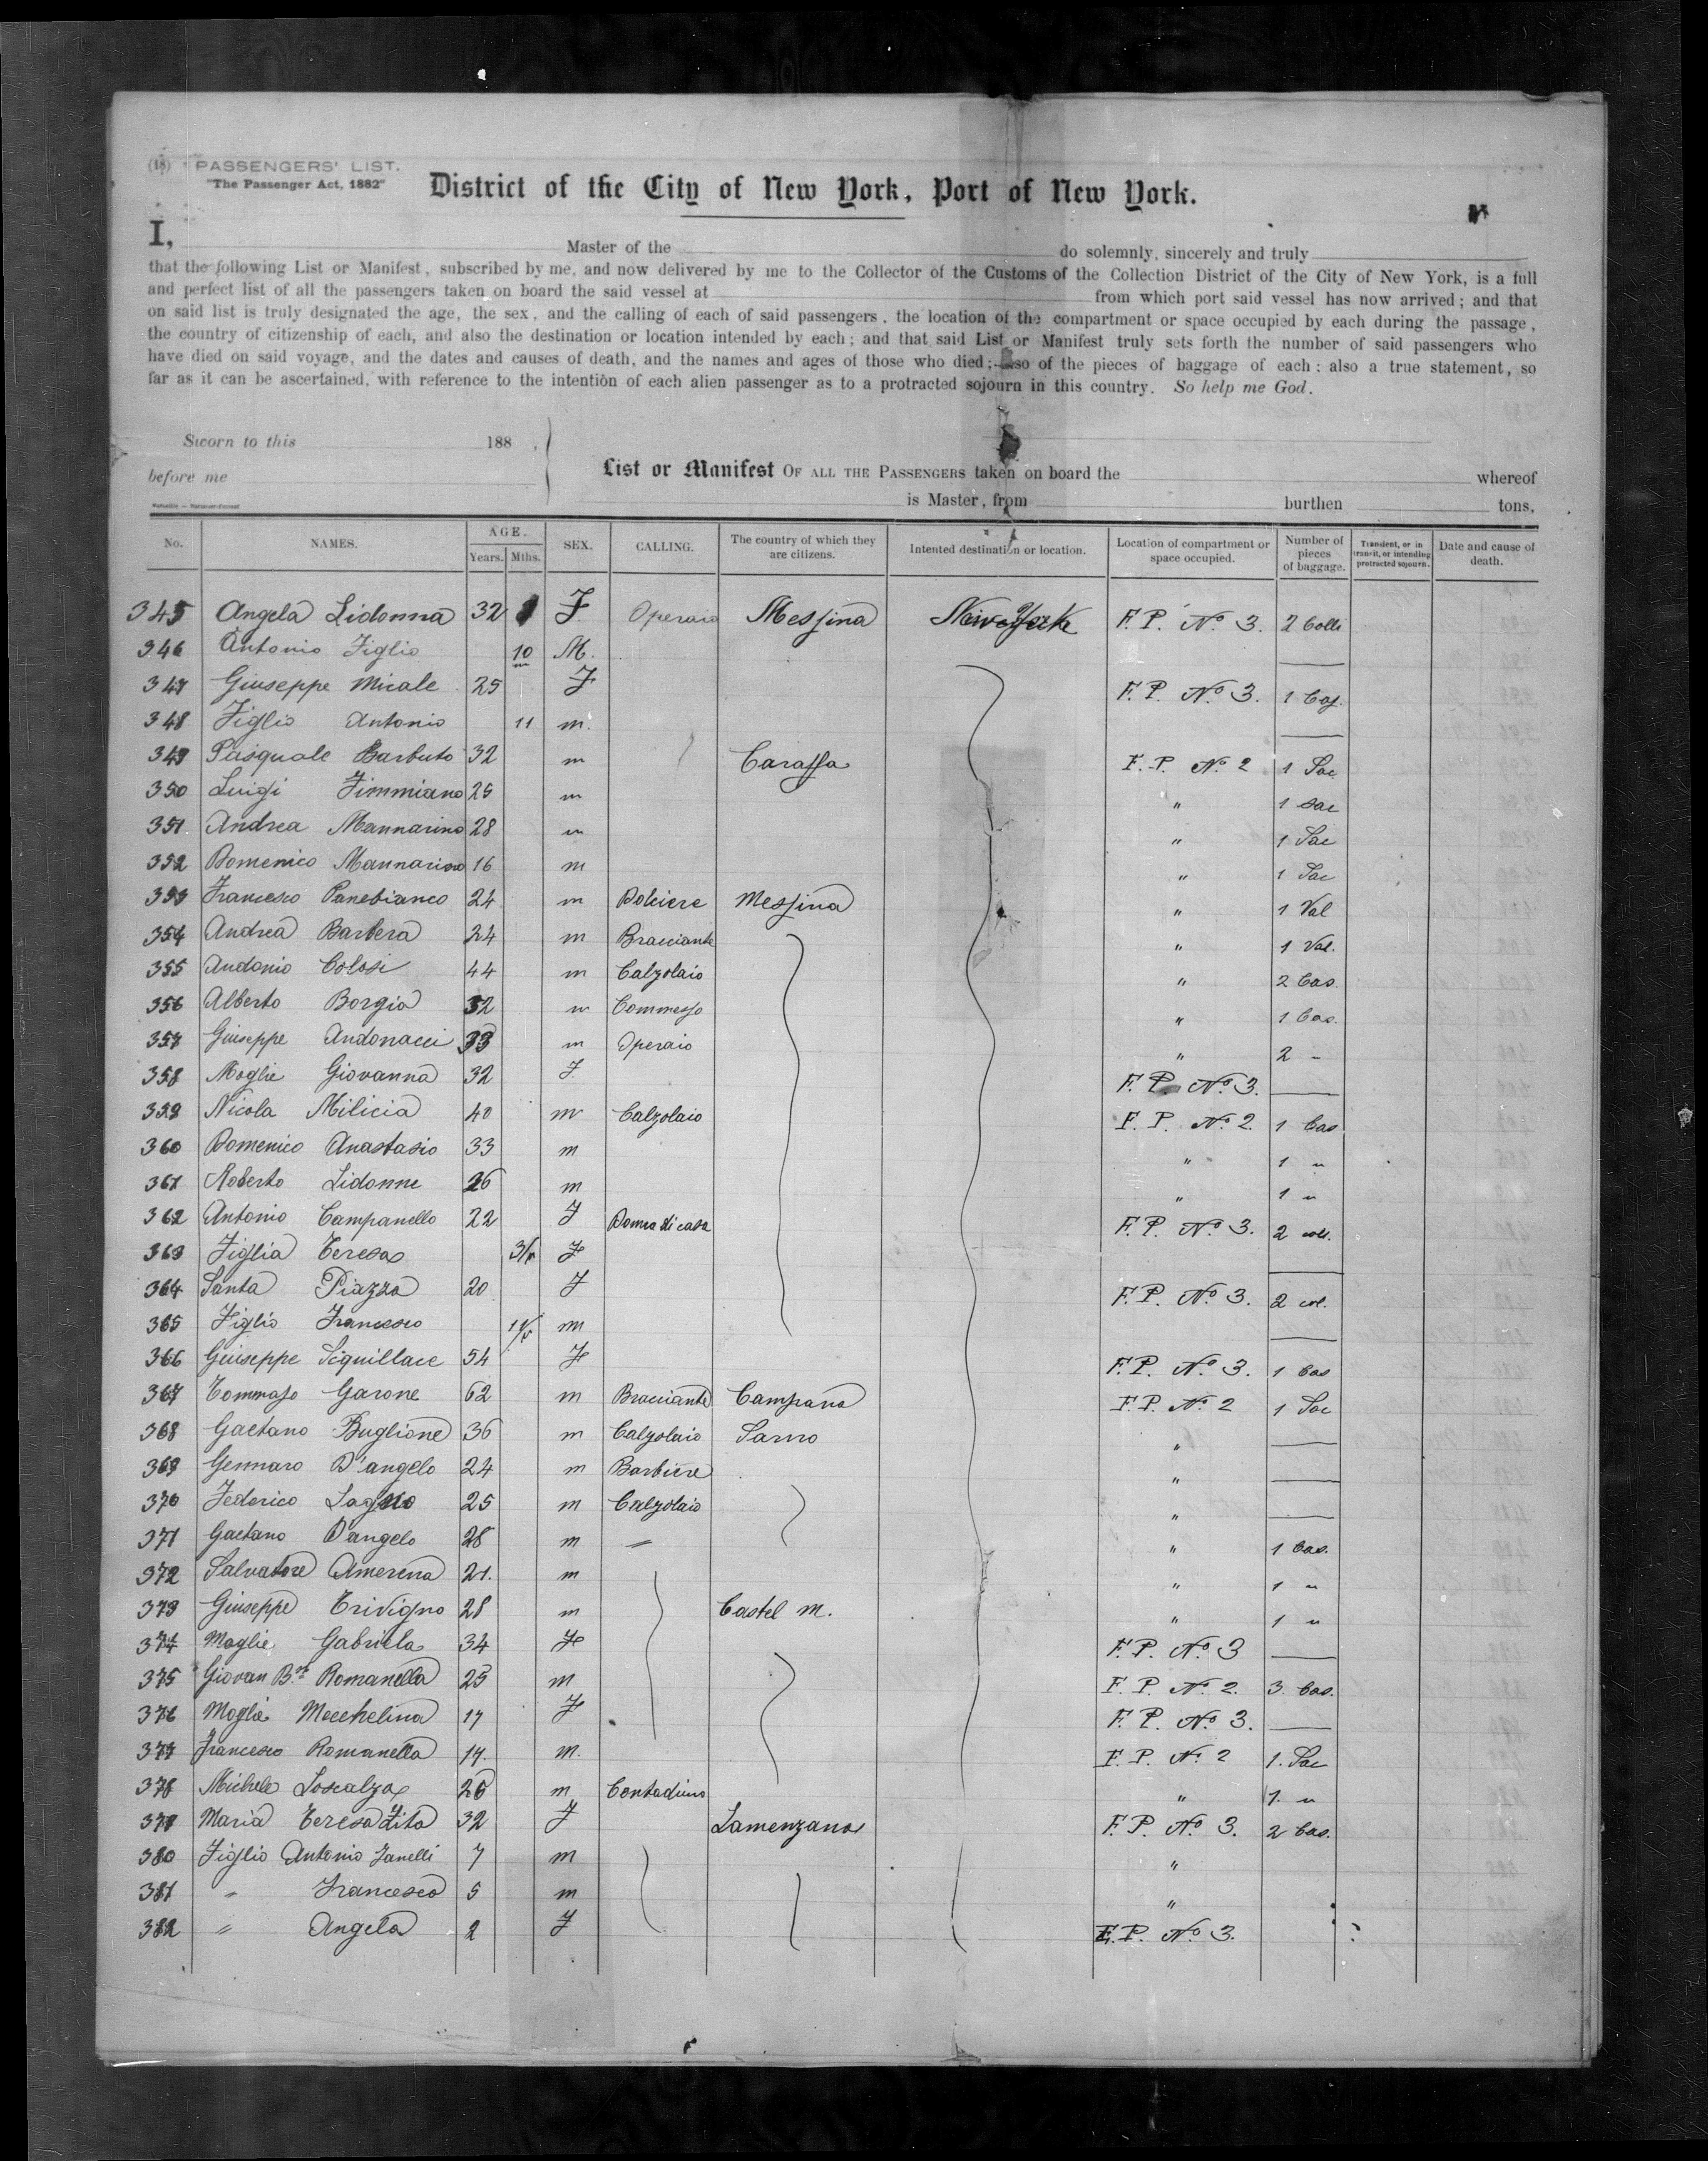 (18) PASSENGERS' LIST.
"The Passenger Act, 1882"
District of the City of New York, Port of New York.
I, Master of the do solemnly, sincerely and truly
that the following List or Manifest, subscribed by me, and now delivered by me to the Collector of the Customs of the Collection District of the City of New York, is a full
and perfect list of all the passengers taken on board the said vessel at from which port said vessel has now arrived; and that
on said list is truly designated the age, the sex, and the calling of each of said passengers, the location of the compartment or space occupied by each during the passage,
the country of citizenship of each, and also the destination or location intended by each; and that said List or Manifest truly sets forth the number of said passengers who
have died on said voyage, and the dates and causes of death, and the names and ages of those who died; also of the pieces of baggage of each; also a true statement, so
far as it can be ascertained, with reference to the intention of each alien passenger as to a protracted sojourn in this country. So help me God.
Sworn to this 188 ,
before me
List or Manifest OF ALL THE PASSENGERS taken on board the whereof
is Master, from burthen tons,
No. NAMES. AGE. Years. Mths. SEX. CALLING. The country of which they are citizens. Intented destination or location. Location of compartment or space occupied. Number of pieces of baggage. Transient, or in transit, or intending protracted sojourn. Date and cause of death.
345 Angela Lidonna 32 F Operaio Messina New York F. P. No. 3. 2 Colli
346 Antonio Figlio 10 M.
347 Giuseppe Micale 25 F F. P. No. 3. 1 Cas.
348 Figlio Antonio 11 m.
349 Pasquale Barbuto 32 m Caraffa F. P. No. 2 1 Sac
350 Luigi Fimmiano 25 m " 1 Sac
351 Andrea Mannarino 28 m " 1 Sac
352 Domenico Mannarino 16 m " 1 Sac
353 Francesco Panebianco 24 m Dolciere Messina " 1 Val
354 Andrea Barbera 24 m Bracciante " 1 Val.
355 Andonio Colosi 44 m Calzolaio " 2 Cas.
356 Alberto Borgia 32 m Commesso " 1 Cas.
357 Giuseppe Andonacci 33 m Operaio " 2 "
358 Moglie Giovanna 32 F. F. P. No. 3.
359 Nicola Milicia 40 m Calzolaio F. P. No. 2. 1 Cas
360 Domenico Anastasio 33 m " 1 "
361 Roberto Lidonne 26 m " 1 "
362 Antonio Campanello 22 F Donna di casa F. P. No. 3. 2 coll.
363 Figlia Teresa F
364 Santa Piazza 20 F F. P. No. 3. 2 col.
365 Figlio Francesco m
366 Giuseppe Squillace 54 F F. P. No. 3. 1 Cas
367 Tommaso Garone 62 m Bracciante Campana F. P. No. 2 1 Sac
368 Gaetano Buglione 36 m Calzolaio Sarno "
369 Gennaro D'angelo 24 m Barbiere "
370 Federico 25 m Calzolaio "
371 Gaetano D'angelo 28 m " " 1 Cas.
372 Salvatore Amerena 21. m " 1 "
373 Giuseppe Trivigno 28 m Castel m. " 1 "
374 Moglie Gabriela 34 F F. P. No. 3
375 Giovan Bta Romanella 25 m F. P. No. 2. 3. Cas.
376 Moglie Mecchelina 17 F F. P. No. 3.
377 Francesco Romanella 17. m. F. P. No. 2 1. Sac
378 Michele Loscalza 26 m Contadino " 1. "
379 Maria Teresa Zita 32 F Lamenzana F. P. No. 3. 2 Cas.
380 Figlio Antonio Janelli 7 m "
381 " Francesco 5 m "
382 " Angela 2 F F. P. No. 3.